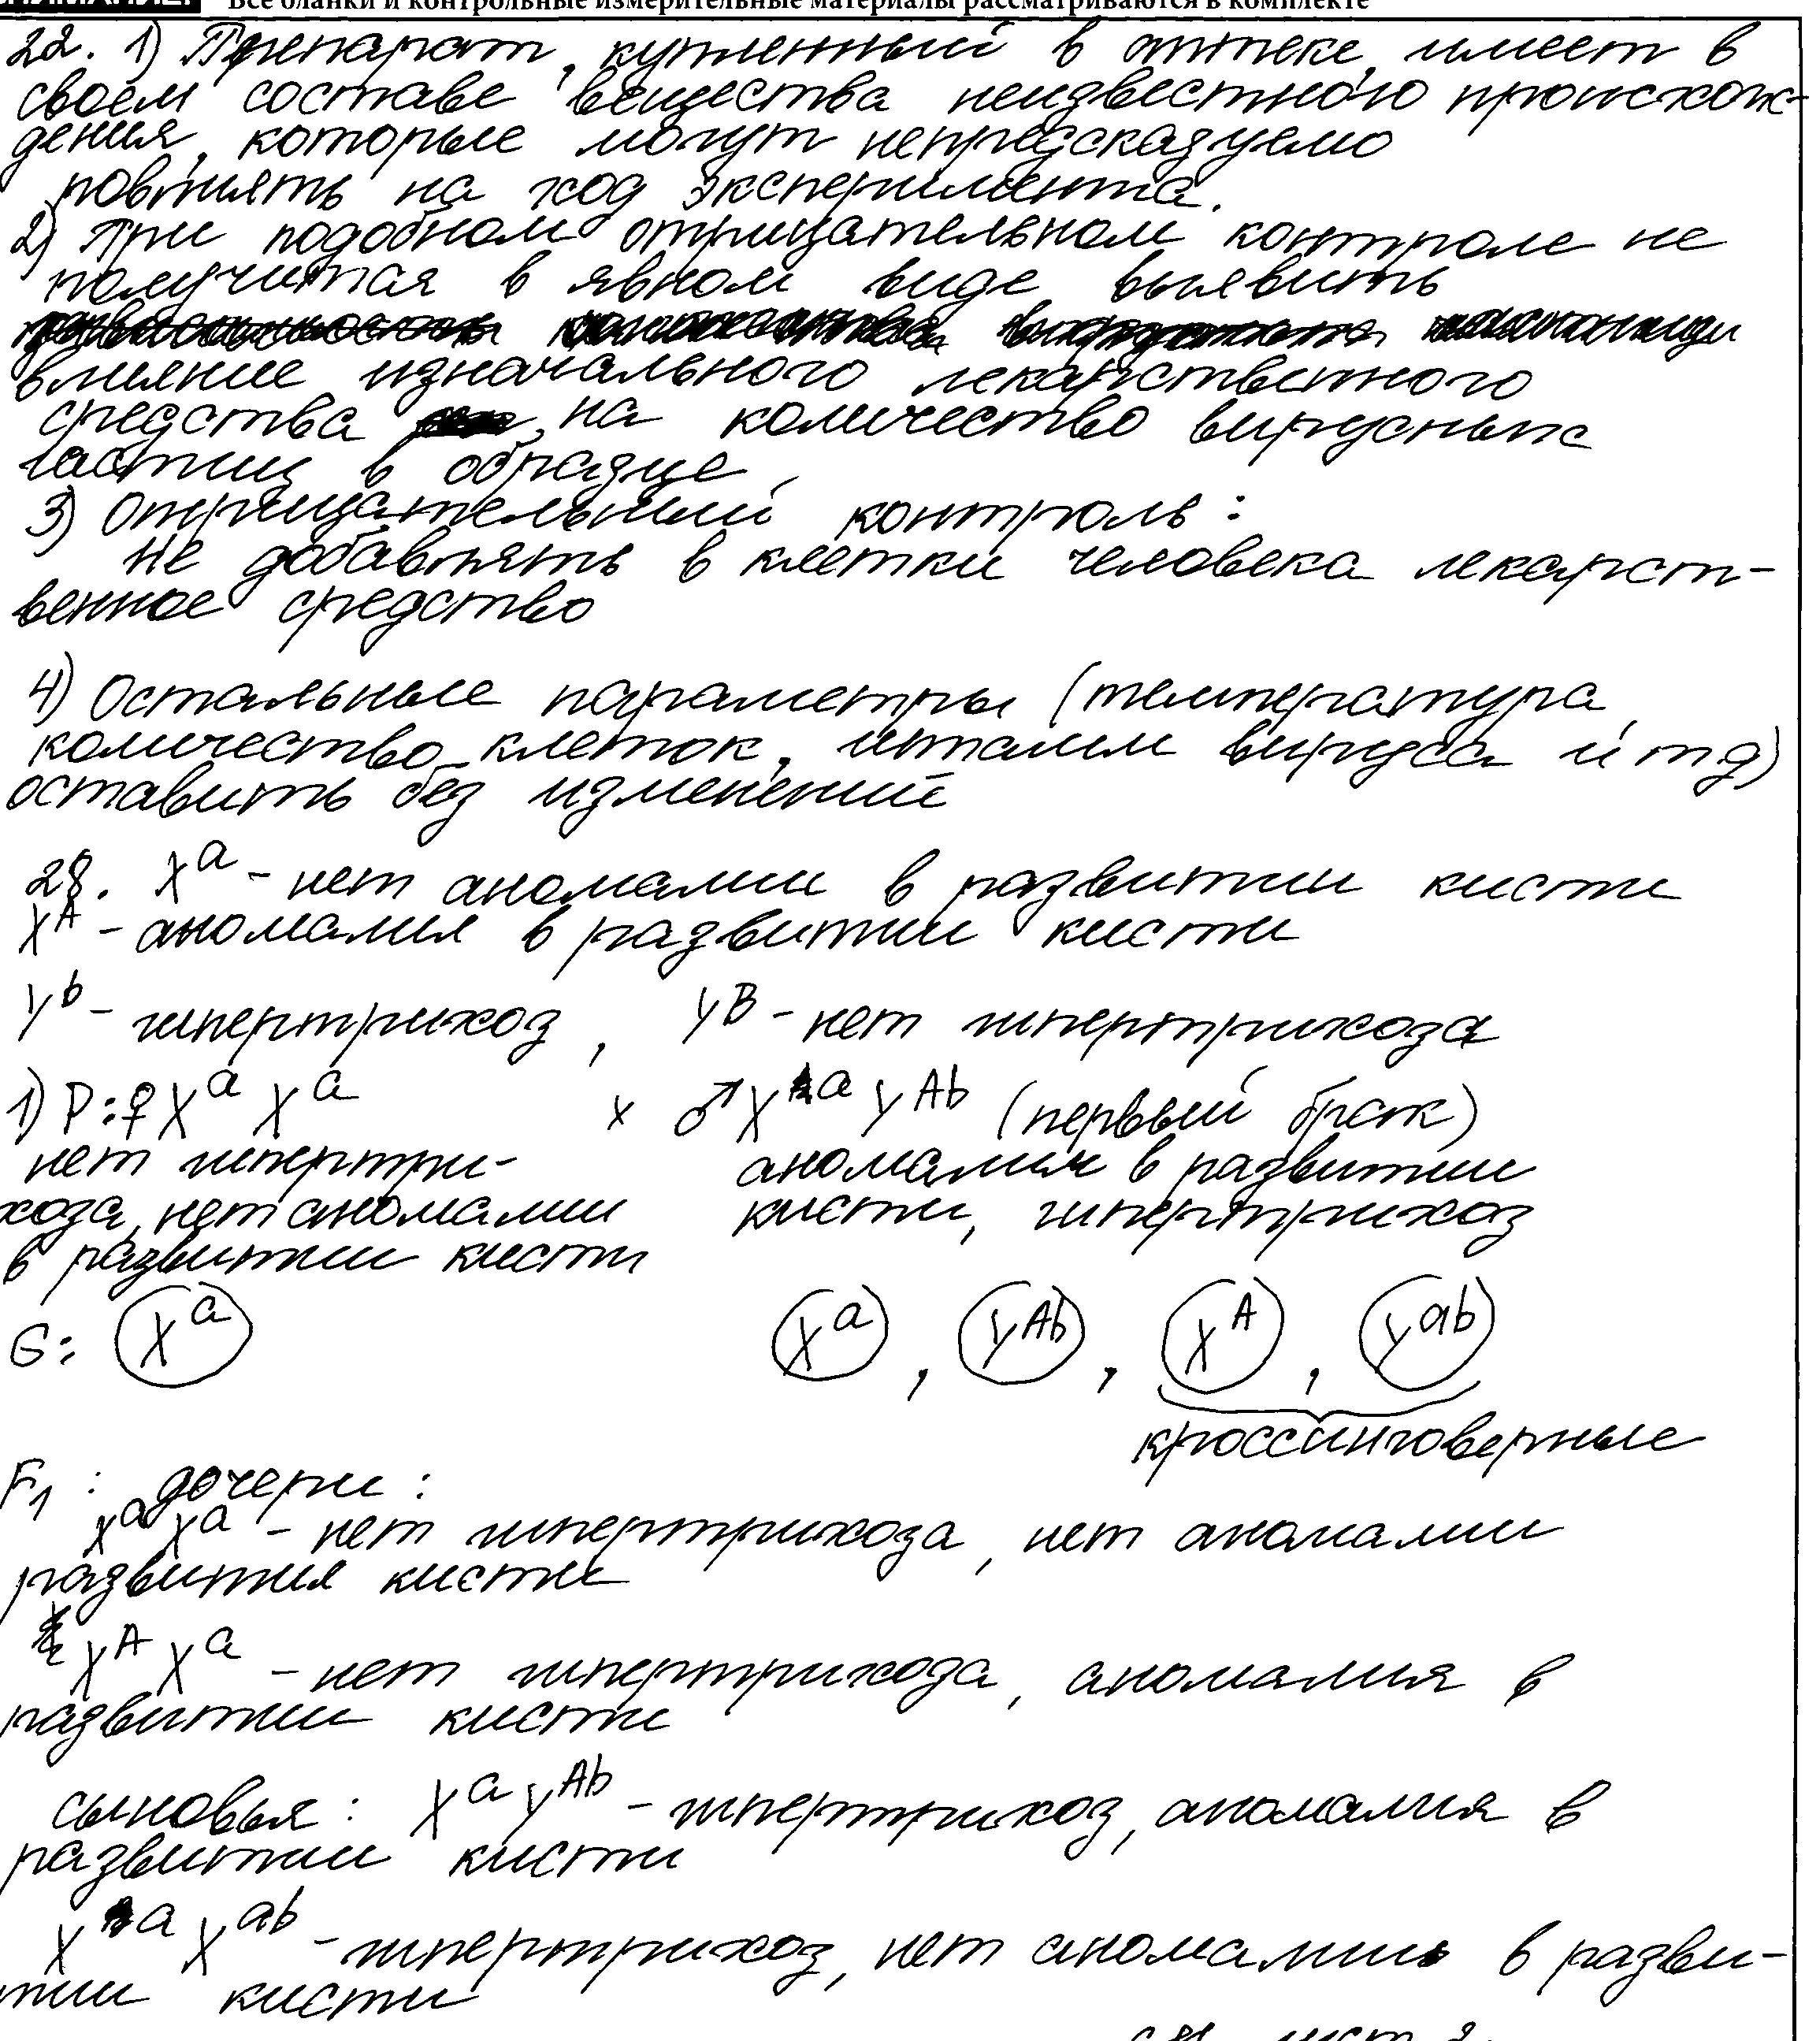 Все бланки и контрольные измерительные материалы рассматриваются в комплекте
22. 1) Препарат, купленный в аптеке, имеет в
своём составе вещества неизвестного происхож-
дения, которые могут непредсказуемо
повлиять на ход эксперимента.
2) При подобном отрицательном контроле не
получится в явном виде выявить
влияние изначального лекарственного
средства на количество вирусных
частиц в образце
3) Отрицательный контроль:
не добавлять в клетки человека лекарст-
венное средство
4) Остальные параметры (температура,
количество клеток, штамм вируса и т д)
оставить без изменений
28. Xᵃ - нет аномалии в развитии кисти
Xᴬ - аномалия в развитии кисти
Yᵇ - гипертрихоз, Yᴮ - нет гипертрихоза
1) P: ♀ Xᵃ Xᵃ x ♂ Xᵃ Yᴬᵇ (первый брак)
нет гипертри- аномалия в развитии
хоза, нет аномалии кисти, гипертрихоз
в развитии кисти
G: Xᵃ Xᵃ, Yᴬᵇ, Xᴬ, Yᵃᵇ
кроссинговерные
F₁: дочери:
Xᵃ Xᵃ - нет гипертрихоза, нет аномалии
развития кисти
Xᴬ Xᵃ - нет гипертрихоза, аномалия в
развитии кисти
сыновья: Xᵃ Yᴬᵇ - гипертрихоз, аномалия в
развитии кисти
Xᵃ Xᵃᵇ - гипертрихоз, нет аномалии в разви-
тии кисти